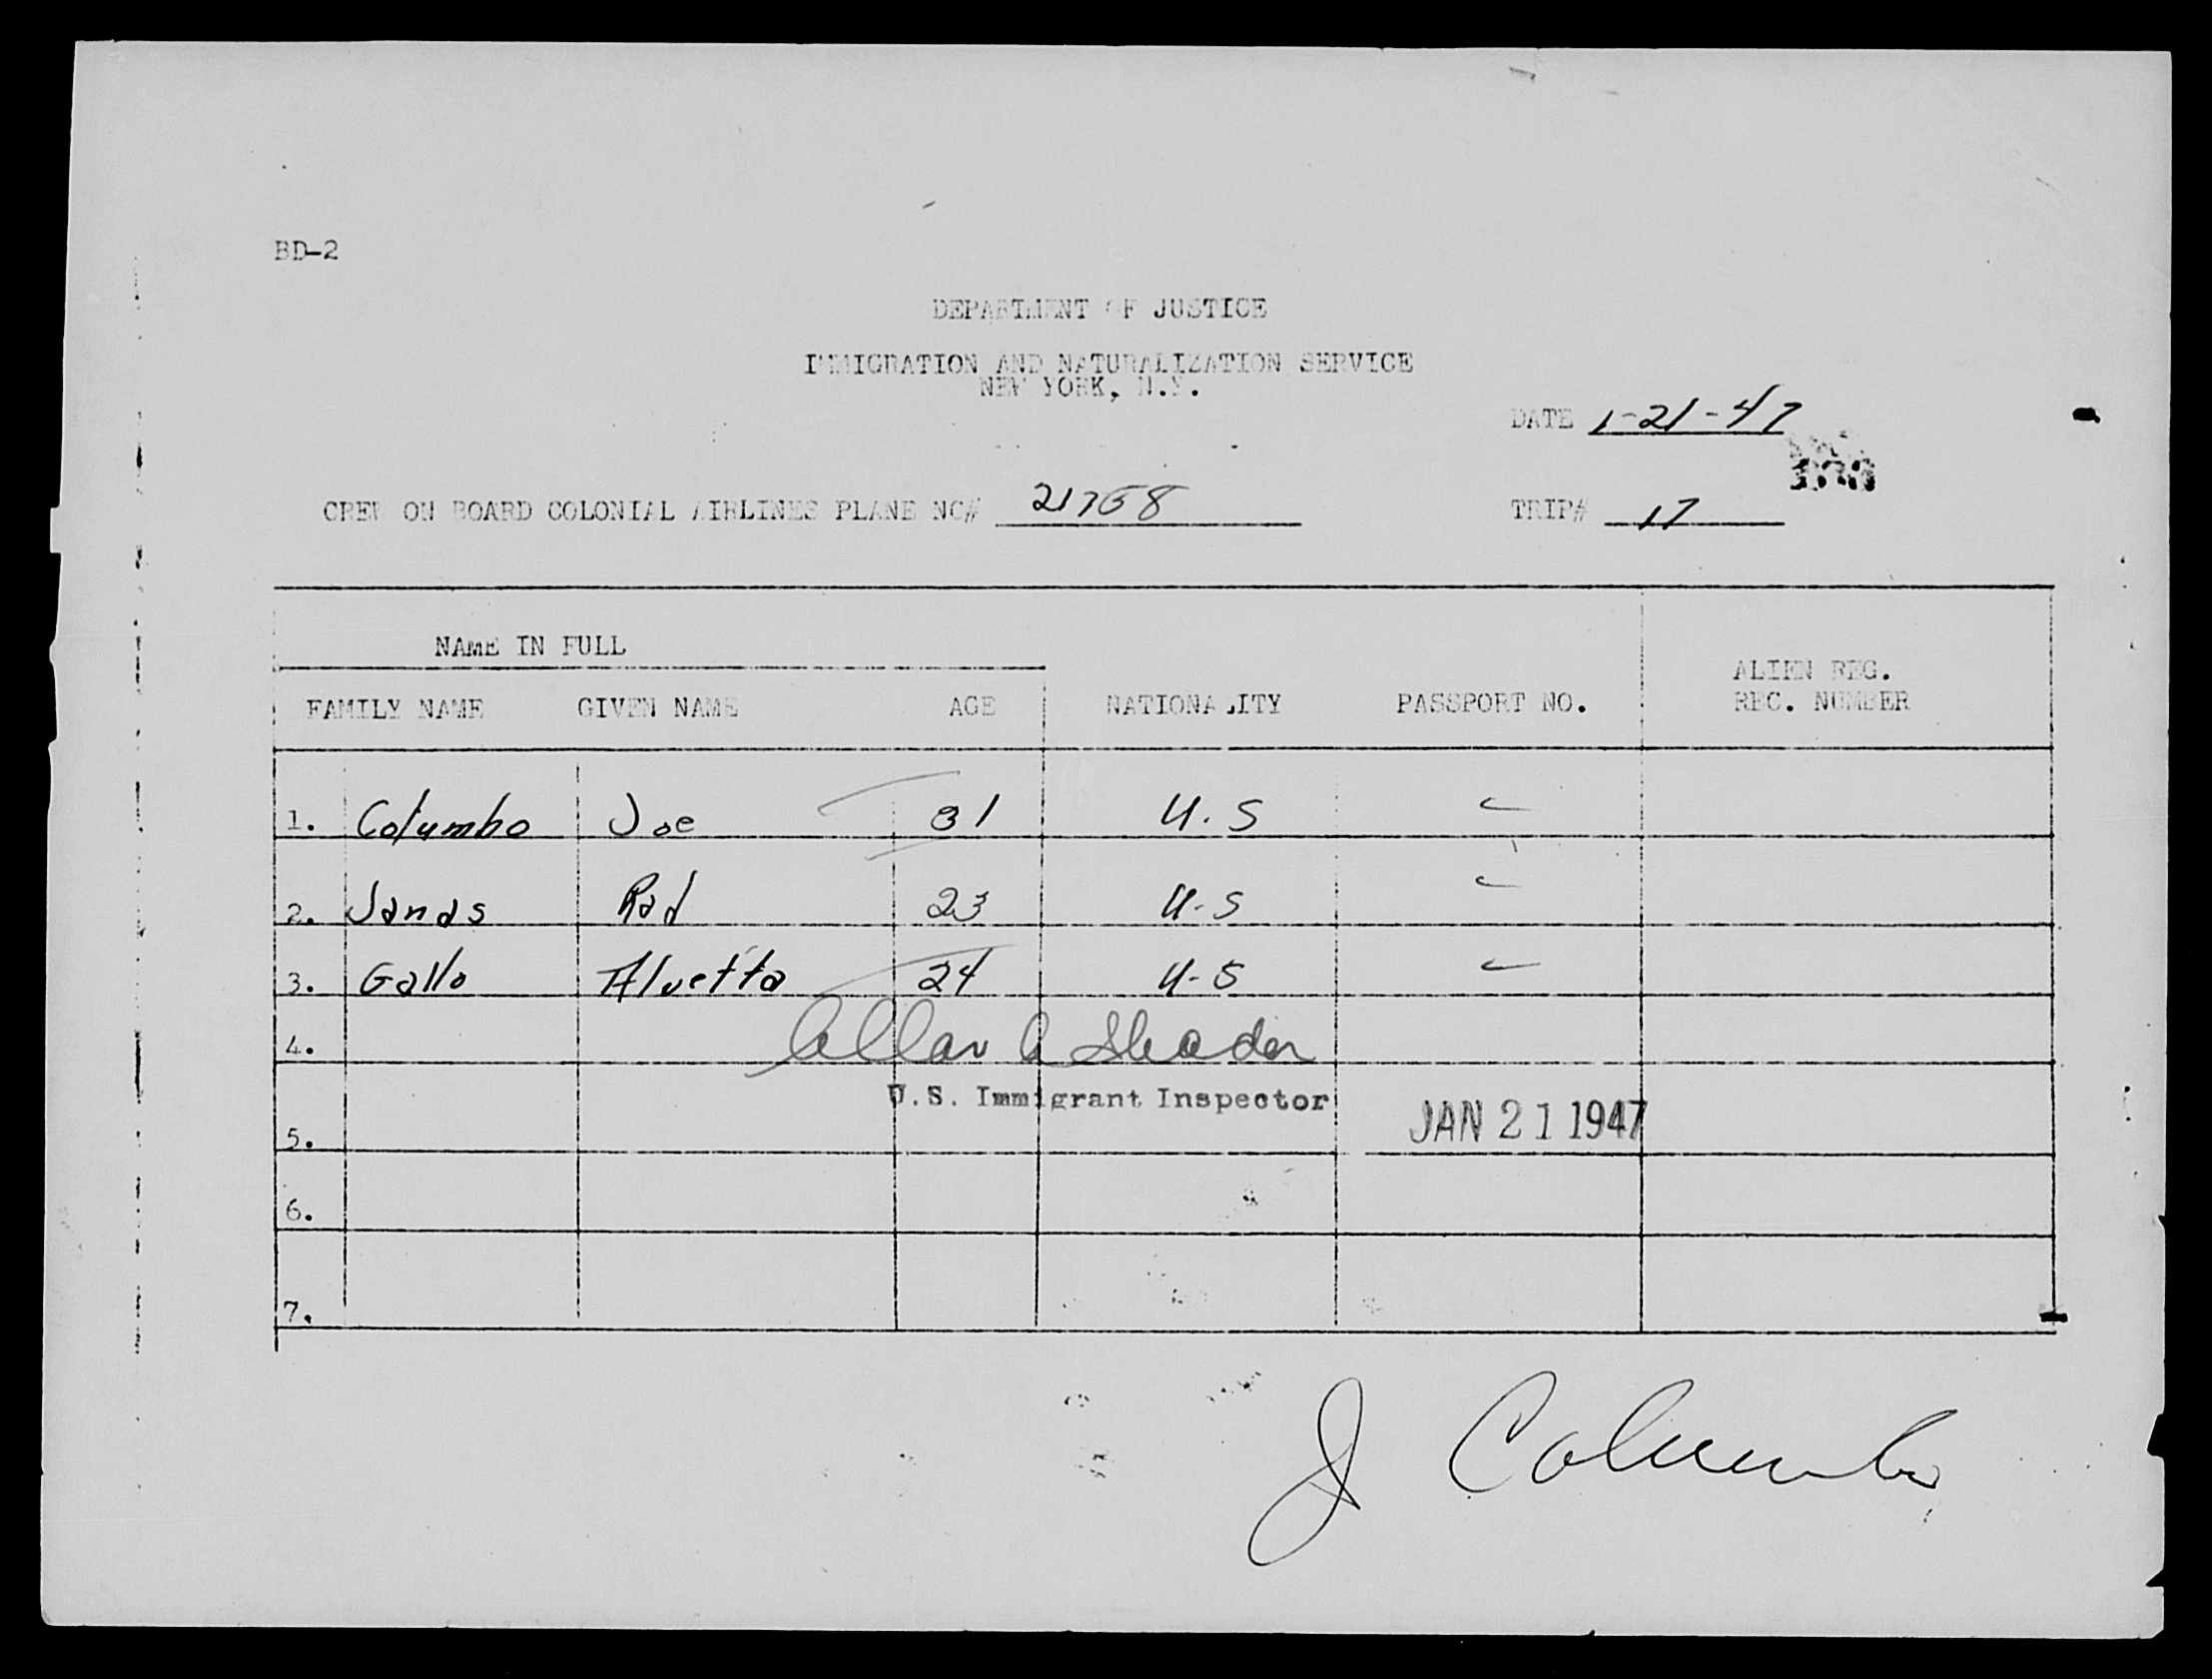 BD-2
DEPARTMENT OF JUSTICE
IMMIGRATION AND NATURALIZATION SERVICE
NEW YORK, N.Y.
DATE 1-21-47
CREW ON BOARD COLONIAL AIRLINES PLANE NC# 21758
TRIP# 17
NAME IN FULL
FAMILY NAME GIVEN NAME AGE NATIONALITY PASSPORT NO. ALIEN REG. REC. NUMBER
1. Columbo Joe 31 U.S
2. Janas Rad 23 U-S
3. Gallo Alvetta 24 U-S
4. Allan Shader
U.S. Immigrant Inspector
JAN 21 1947
5.
6.
7.
J Columbo